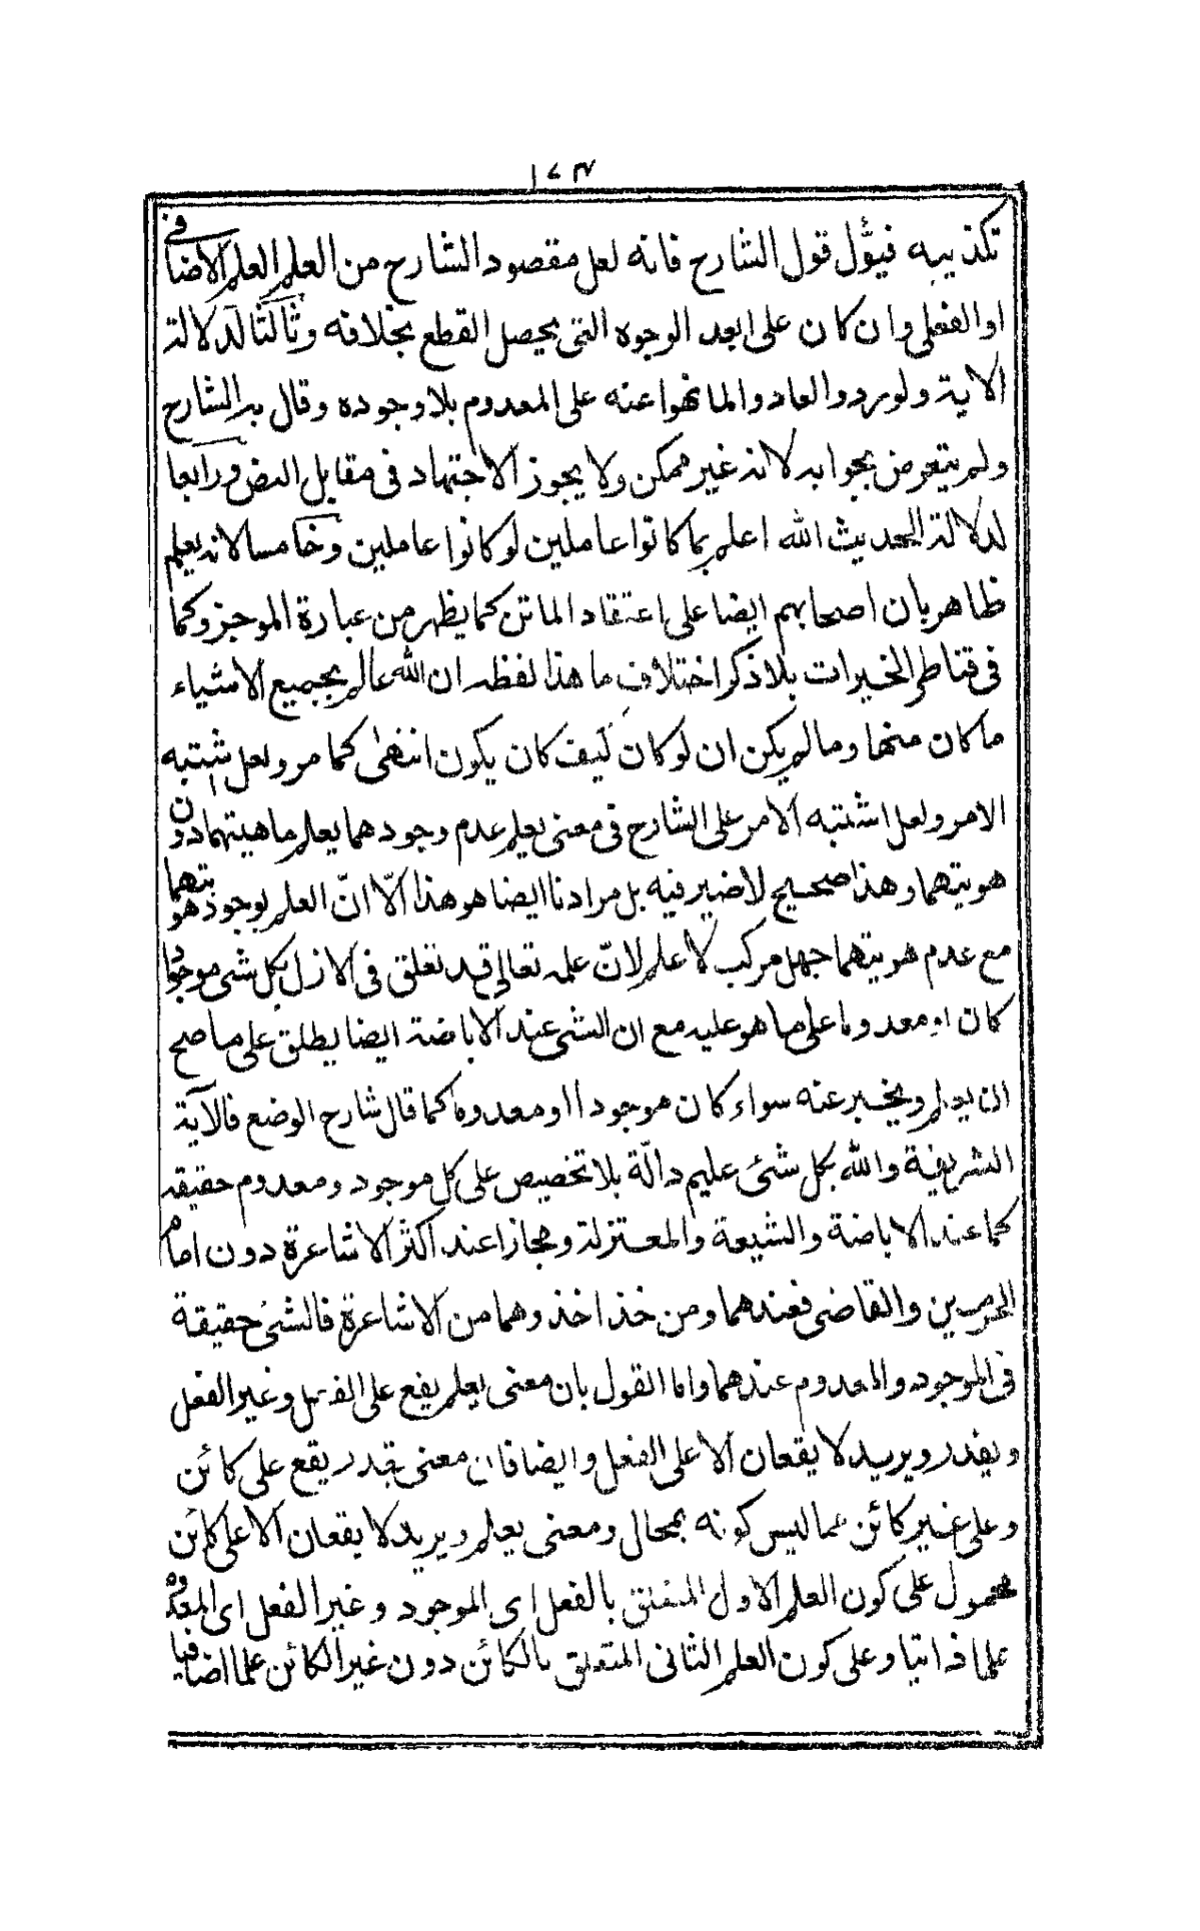 ١٧٣
تكذيبه فيؤّل قول الشارح فانه لعل مقصود الشارح من العلم العلم الاضافى
او الفعلى وان كان على ابعد الوجوه التى يحصل القطع بخلافه وثالثا لدلالة
الاية ولو ردوا لعادوا لما نهوا عنه على المعدوم بلا وجوده وقال بدر الشارح
ولم يتعرض بجوابه لانه غير ممكن ولا يجوز الاجتهاد فى مقابل النص ورابعا
لدلالة الحديث الله اعلم بما كانوا عاملين لو كانوا عاملين وخامسا لانه يعلم
ظاهر بان اصحابهم ايضا على اعتقاد الماتن كما يظهر من عبارة الموجز وكما
فى قناطر الخيرات بلا ذكر اختلاف ما هذا لفظه ان الله عالم بجميع الاشياء
ما كان منها وما لم يكن ان لو كان كيف كان يكون انتهىٰ كما مر ولعل اشتبه
الامر ولعل اشتبه الامر على الشارح فى معنى يعلم عدم وجودهما يعلم ماهيتهما دون
هويتهما وهذا صحيح لا ضير فيه بل مرادنا ايضا هو هذا الّا انّ العلم بوجود هويتهما
مع عدم هويتهما جهل مركب لا علم لانّ علمه تعالى قد تعلق فى الازل بكل شى موجودا
كان او معدوما على ما هو عليه مع ان الشى عند الاباضة ايضا يطلق على ما صح
ان يعلم ويخبر عنه سواء كان موجودا او معدوما كما قال شارح الوضع فالآية
الشريفة والله بكل شئ عليم دالّة بلا تخصيص على كل موجود ومعدوم حقيقه
كما عند الاباضة والشيعة والمعتزلة ومجازا عند اكثر الاشاعرة دون امام
الحرمين والقاضى فعندهما ومن خذا خذوهما من الاشاعرة فالشئ حقيقة
فى الموجود والمعدوم عندهما واما القول بان معنى يعلم يقع على الفعل وغير الفعل
ويقدر ويريد لا يقعان الا على الفعل وايضا فان معنى يقدر يقع على كائن
وعلى غير كائن مما ليس كونه بمحال ومعنى يعلم ويريد لا يقعان الا على كائن
محمول على كون العلم الاول المتعلق بالفعل اى الموجود وغير الفعل اى المعدوم
علما ذاتيا وعلى كون العلم الثانى المتعلق بالكائن دون غير الكائن علما اضافيا